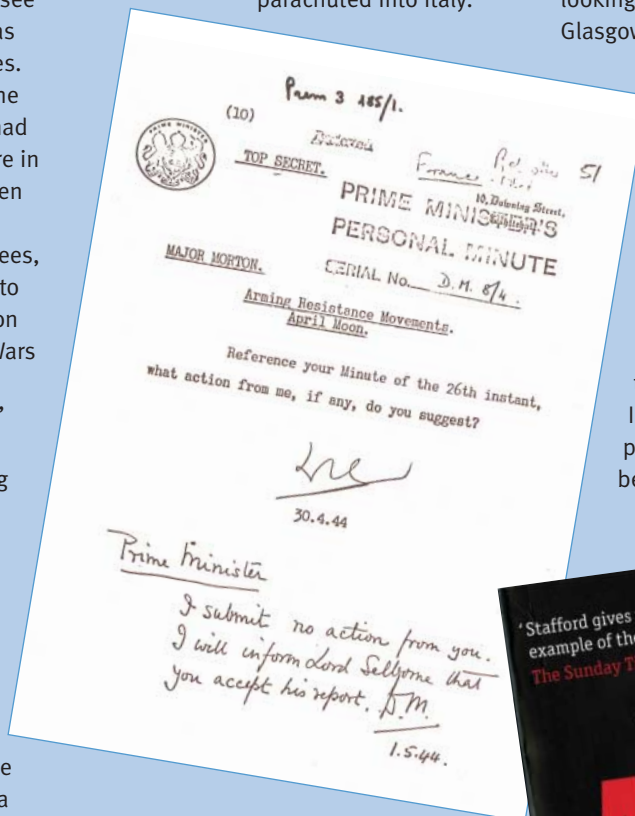 see
as
es.
ne
had
re in
en
ees,
to
on
Wars
,
g
e
a
parachuted into Italy.
looking
Glasgow
I
p
be
Prem 3 185/1.
(10)
PRIME MINISTER
TOP SECRET.
France
51
10, Downing Street,
PRIME MINISTER'S
PERSONAL MINUTE
SERIAL No. D.M. 8/4.
MAJOR MORTON.
Arming Resistance Movements.
April Moon.
Reference your Minute of the 26th instant,
what action from me, if any, do you suggest?
30.4.44
Prime Minister
I submit no action from you.
I will inform Lord Selborne that
you accept his report. D.M.
1.5.44.
'Stafford gives
example of the
The Sunday T